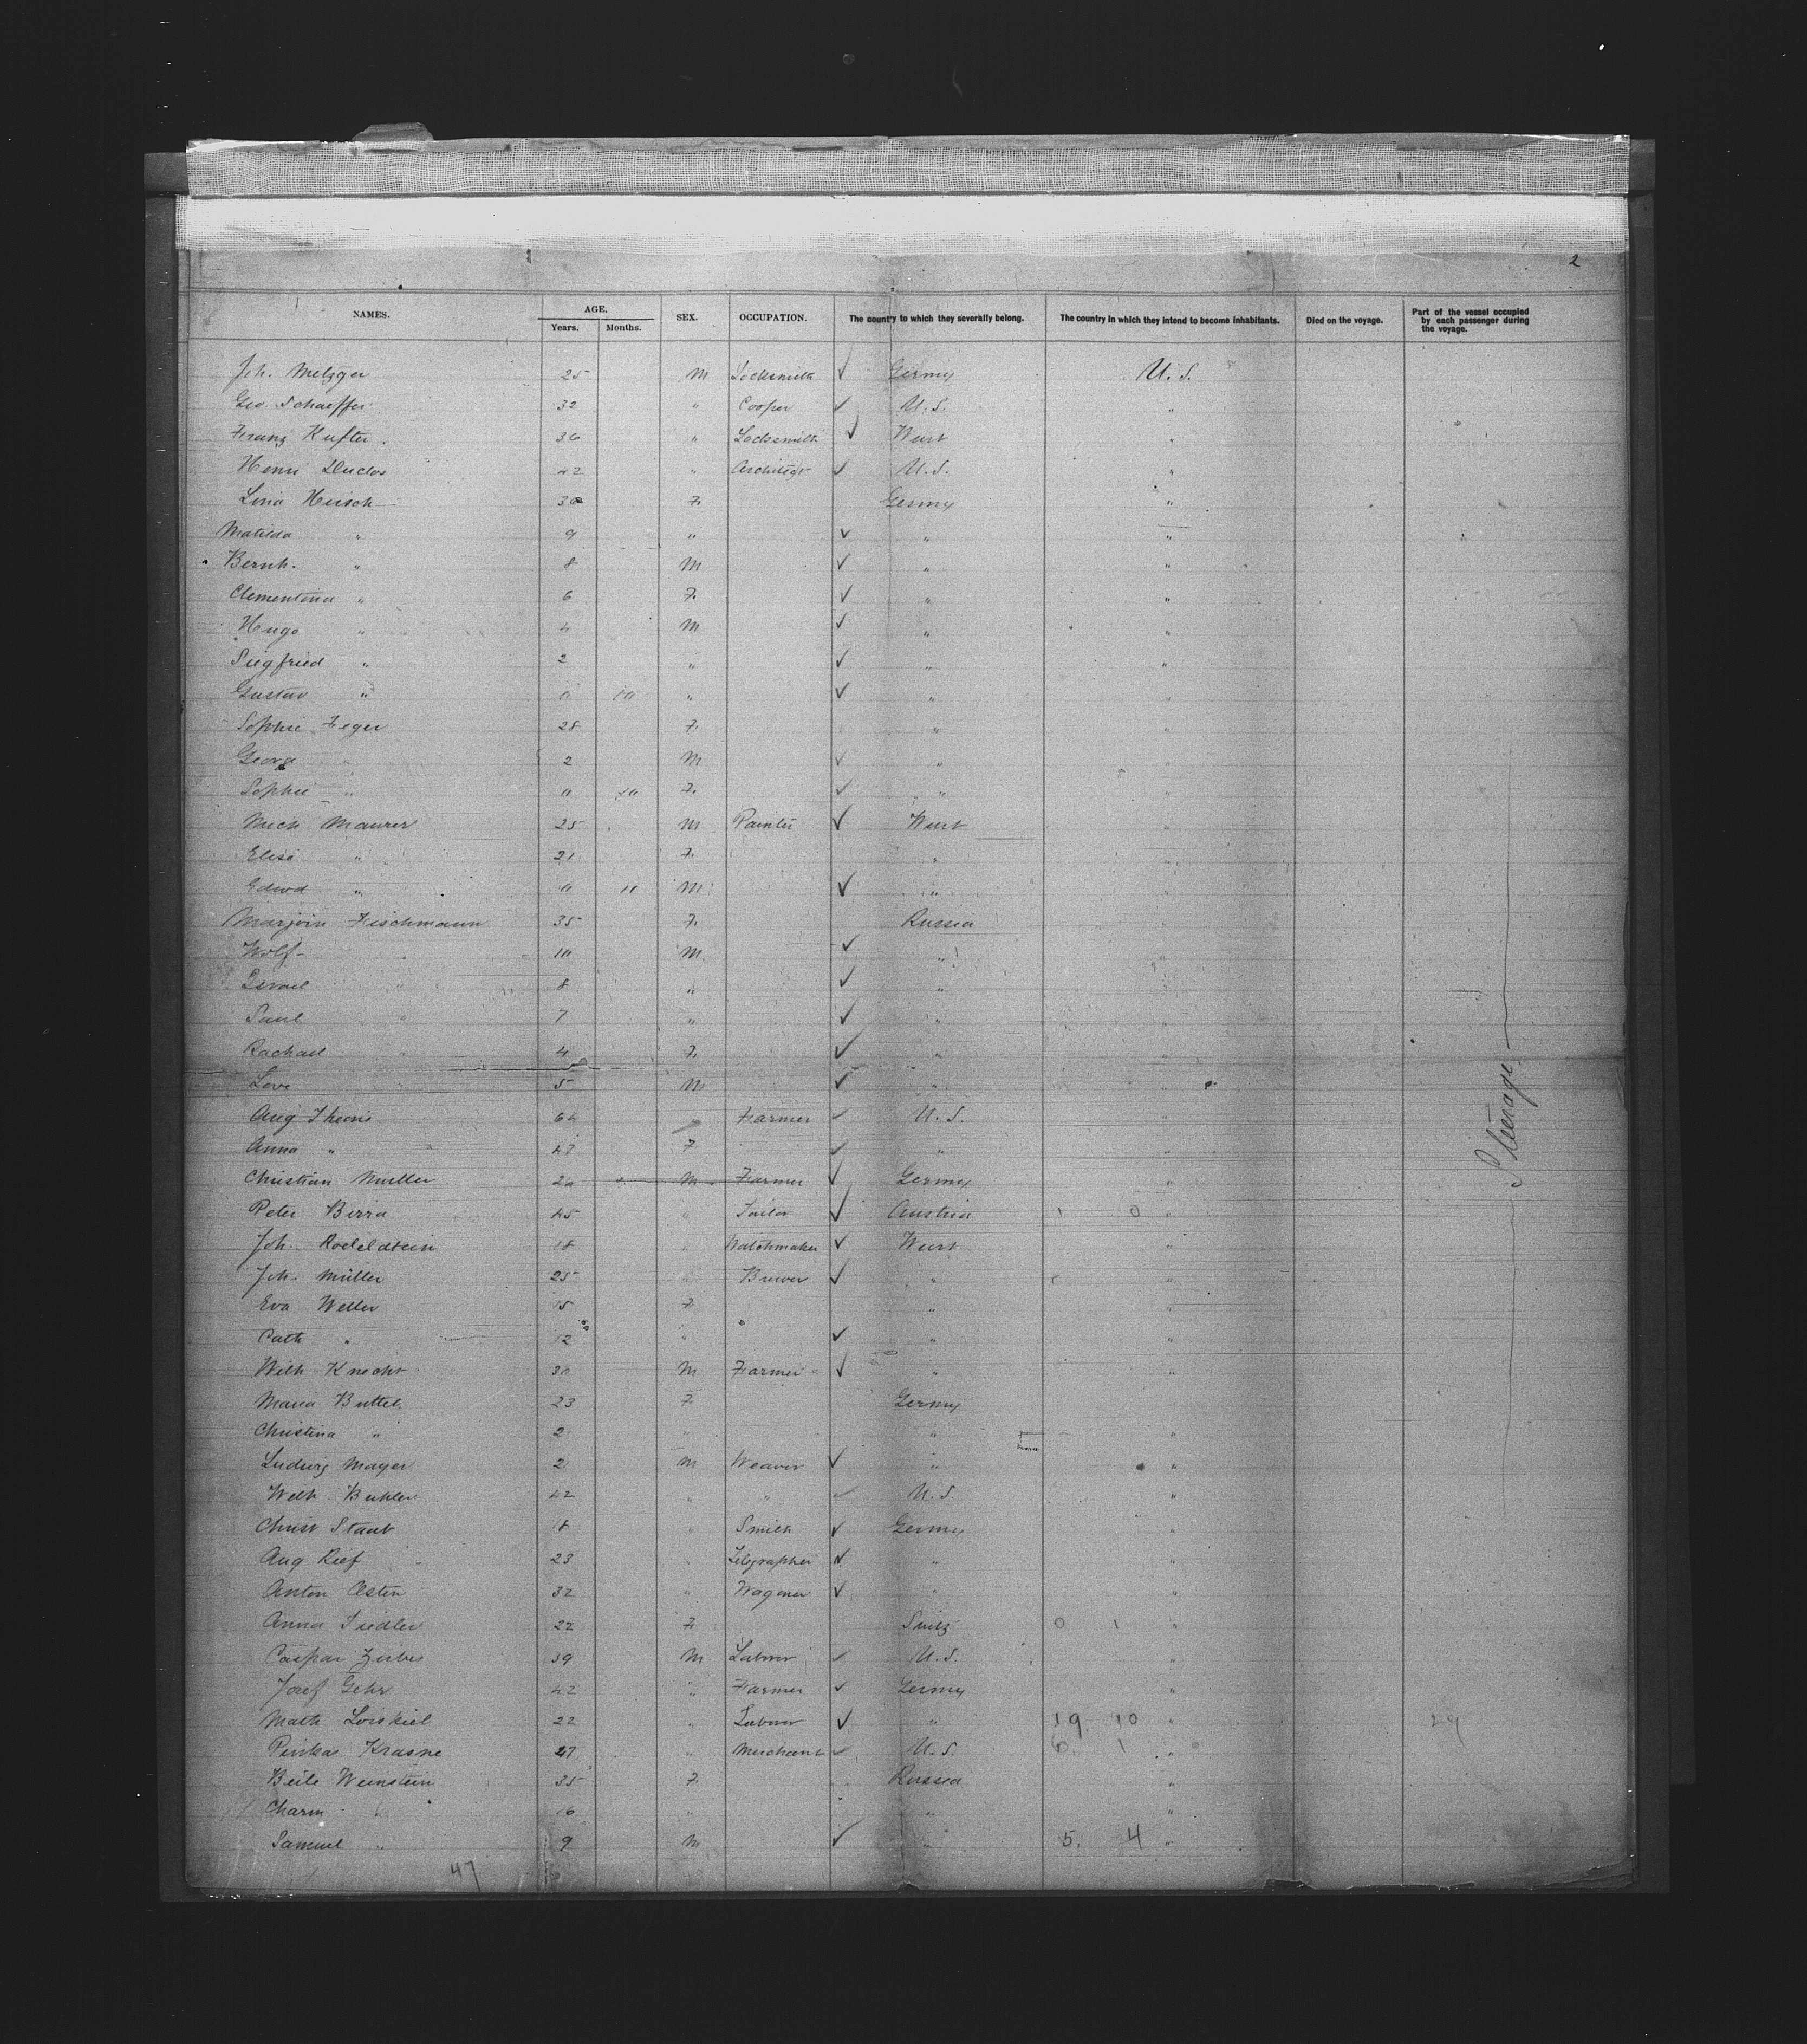 2
NAMES. AGE. Years. Months. SEX. OCCUPATION. The country to which they severally belong. The country in which they intend to become inhabitants. Died on the voyage. Part of the vessel occupied by each passenger during the voyage.
Joh. Metzger 25 M Locksmith ✓ Germy U. S.
Geo. Schaeffer 32 " Cooper ✓ U. S. "
Franz Kufter 36 " Locksmith ✓ Wurt "
Henri Duclos 42 " Architect ✓ U. S. "
Lina Hirsch 30 F. Germy "
Matilda " 9 " ✓ " "
Bernh. " 8 M ✓ " "
Clementina " 6 F. ✓ " "
Hugo " 4 M ✓ " "
Siegfried " 2 " ✓ " "
Gustav " 0 10 " ✓ " "
Sophie Feger 28 F. " "
Georg " 2 M ✓ " "
Sophie " 0 10 F. ✓ " "
Mich Maurer 25 M Painter ✓ Wurt "
Elise " 21 F. " "
Edwd " 0 11 M ✓ " "
Fischmann 35 F. Russia "
Wolf " 10 M ✓ " "
Israel " 8 " ✓ " "
Saul " 7 " ✓ " "
Rachael " 4 F. ✓ " "
Levi " 5 M ✓ " "
Aug Theoni 64 " Farmer ✓ U. S. "
Anna " 47 F ✓ " "
Christian Mueller 20 M Farmer ✓ Germy "
Peter Birra 45 " Tailor ✓ Austria 1 0 "
Joh. 18 " Watchmaker ✓ Wurt "
Joh. Müller 25 " Brewer ✓ " "
Eva Weller 15 F " "
Cath " 12 " ✓ " "
Wilh Knecht 30 M Farmer ✓ " "
Maria Buttel 23 F Germy "
Christina " 2 " " "
Ludwig Mayer 2 M Weaver ✓ " "
Wilh Buhler 42 " " ✓ U. S. "
Christ Staub 18 " Smith ✓ Germy "
Aug Rief 23 " Telegrapher ✓ " "
Anton Osten 32 " Wagoner ✓ " "
Anna Fiedler 22 F. Switz 0 1 "
Caspar Zirbes 39 M Labour ✓ U. S. "
Josef Gehr 42 " Farmer ✓ Germy "
Math Loiskiel 22 " Labour ✓ " 19. 10 " 29
Pinkas Krasne 27 " Merchant ✓ U. S. 6. 1 "
Beile Weinstein 35 F. Russia "
Charm " 16 " " "
Samuel " 9 M ✓ " 5. 4 "
47
Steerage